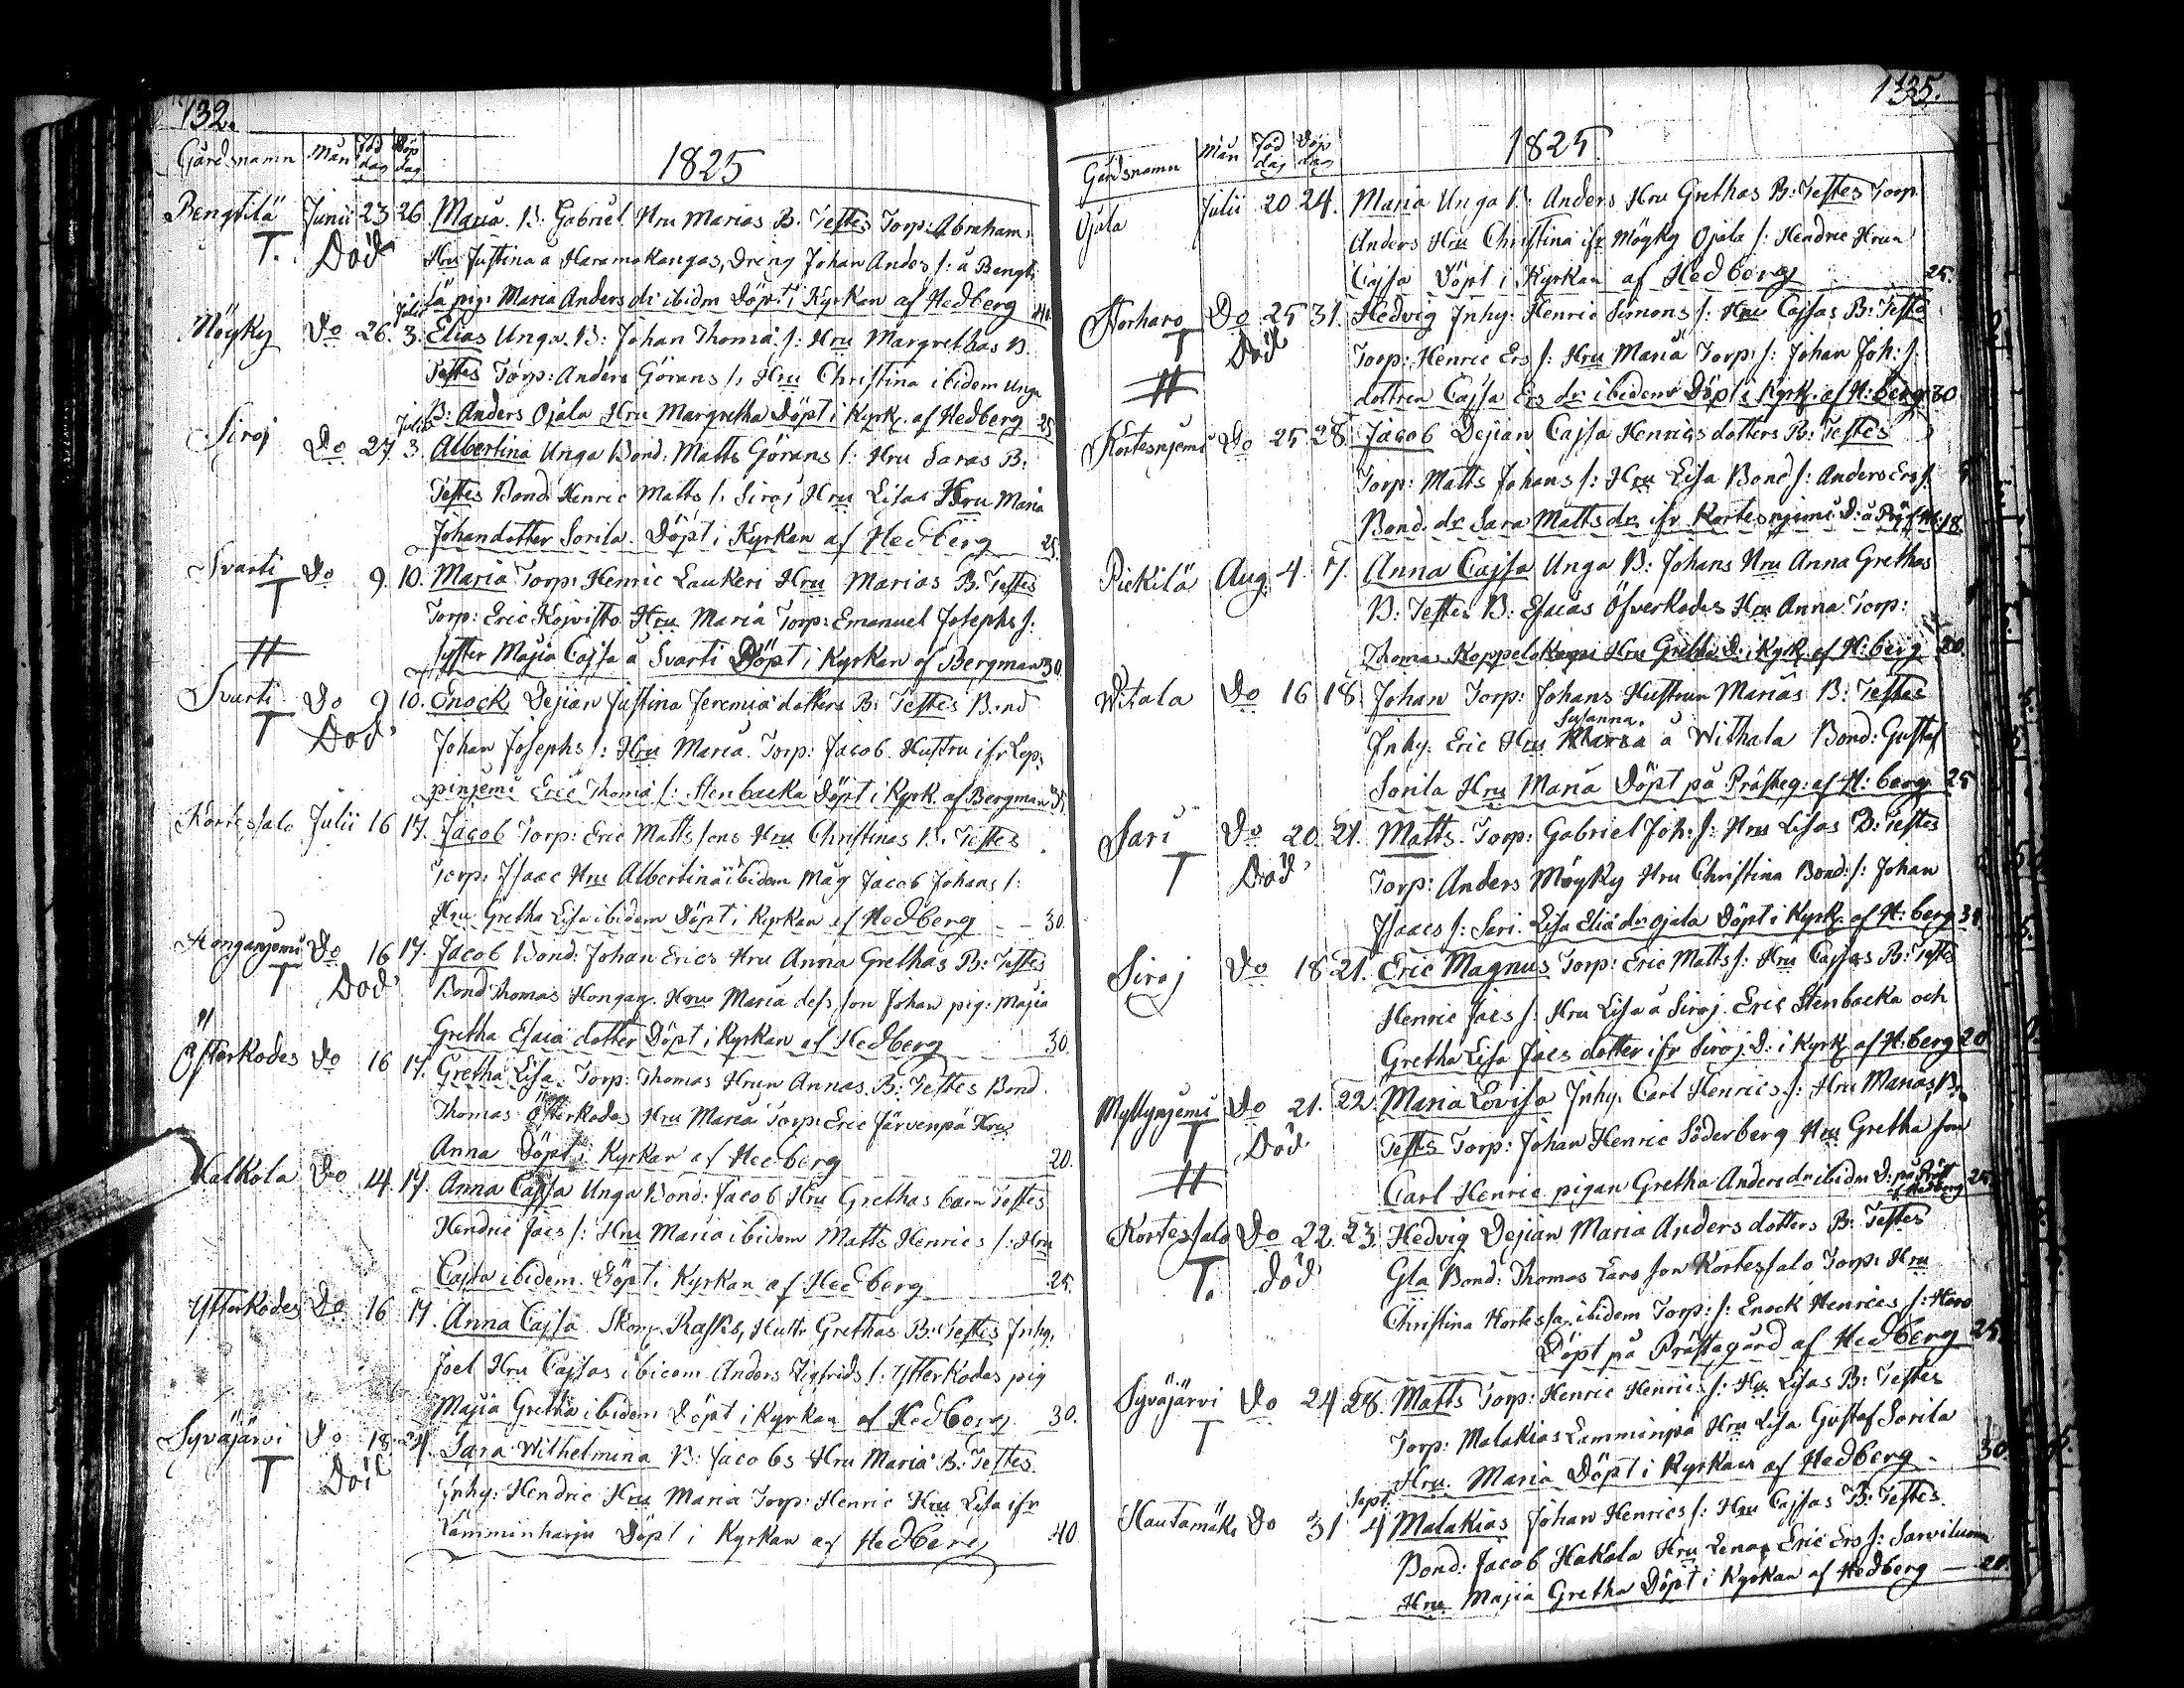 132.
Gårdsnamn Mån Föd dag Döp dag
1825
Bengtilä Junii 23 26 Maria B: Gabriel Hru Marias B. Testes Torp: Abraham
T. Död Hru Justina a Haramakangas, Dräng Johan Anders s: a Bengti
lä pig: Maria Anders dr ibidm Döpt i Kyrkan af Hedberg
Möyky Do 26. Julii 3. Elias Unga B: Johan Thoma s: Hru Margrethas B.
Testes Torp: Anders Görans s: Hru Christina ibidem Unga
B: Anders Ojala Hru Margretha Döpt i Kyrk. af Hedberg 25
Siroj Do 27 Julii 3. Albertina Unga Bond: Matts Görans s: Hru Saras B:
Testes Bond Henric Matts s: Siroj Hru Lisa Hru Maria
Johandotter Sorila. Döpt i Kyrkan af Hedberg 25.
Svarti Do 9. 10. Maria Torp: Henric Laukeri Hru Marias B. Testes
T Torp: Eric Kojvisto Hru Maria Torp: Emanuel Josephs s:
H syster Maja Cajsa a Svarti Döpt i Kyrkan af Bergman 30.
Svarti Do 9 10. Enock Dejian Justina Jeremia dotters B: Testes Bond
T Död Johan Josephs s: Hru Maria. Torp: Jacob Hustru ifr Lep:
pinjemi Eric Thoma s: Stenbacka Döpt i Kyrk. af Bergman
Kortessalo Julii 16 17. Jacob Torp: Eric Matts sons Hru Christinas B. Testes
Torp: Isaac Hru Albertina ibidem Måg Jacob Johans s:
Hru Gretha Lisa ibidem Döpt i Kyrkan af Hedberg 30.
Honganjemi Do 16 17. Jacob Bond: Johan Erics Hru Anna Grethas B: Testes
T Död Bond Thomas Hongan. Hru Maria dess son Johan pig: Maja
Gretha Esaia dotter Döpt i Kyrkan af Hedberg 30.
Österkodes Do 16 17. Gretha Lisa Torp: Thomas Hrun Annas B: Testes Bond
Thomas Österkodes Hru Maria Torp: Eric Järvenpä Hru
Anna Döpt i Kyrkan af Hedberg 20.
Halkola Do 14 17. Anna Cajsa Unga Bond: Jacob Hru Grethas barn Testes
Hendric Jacs s: Hru Maria ibidem Matts Henrics s: Hru
Cajsa ibidem. Döpt i Kyrkan af Hedberg 25.
Ytterkodes Do 16 17. Anna Cajsa Skom. Rasks, Hustr Grethas B: Testes Inhy.
Joel Hru Cajsas ibidem Anders Sigfrids s: Ytterkodes pig
Maja Gretha ibidem Döpt i Kyrkan af Hedberg 30.
Syväjärvi Do 18. 24. Sara Wilhelmina B: Jacobs Hru Maria B: Testes
T Död Inhy: Hendric Hru Maria Torp: Henric Hru Lisa ifr
Lamminharju Döpt i Kyrkan af Hedberg 40
135.
Gårdsnamn Mån Föd dag Döp dag
1825
Ojala Julii 20 24. Maria Unga B: Anders Hru Grethas B: Testes Torp
Anders Hru Christina ifr Möyky Ojala s: Hendric Hrun
Cajsa Döpt i Kyrkan af Hedberg 25.
Norharo Do 25 31. Hedvig Inhy: Henric Simons s: Hru Cajsas B: Teste
T Död Torp: Henric Ers s: Hru Maria Torp: s: Johan Joh: s:
H dottren Cajsa Ers dr ibidem Döpt i Kyrk. af H: berg 30
Kortesnjemi Do 25 28 Jacob Dejian Cajsa Henrics dotters B: Testes
Torp: Matts Johans s: Hru Lisa Bond s: Anders Ers s.
Bond. dr Sara Matts dr ifr Kortesnjemi
Pickilä Aug. 4. 7. Anna Cajsa Unga B: Johans Hru Anna Grethas
B: Testes B: Esaias Öfverkodes Hru Anna Torp:
Thomas Koppelokangas Hru Gretha D. i Kyrk. af H: berg 20.
Witala Do 16 18. Johan Torp: Johans Hustrun Marias B: Testes
Inhy: Eric Hru Susanna. a Withala Bond: Gustaf
Sorila Hru Maria Döpt på Prästeg: af H: berg 25
Sari Do 20. 21. Matts Torp: Gabriel Joh: s: Hru Lisas B: Testes
T Död Torp: Anders Möyky Hru Christina Bond: s: Johan
Isaacs s: Sari. Lisa Elia dr Ojala Döpt i Kyrk. af H: berg
Siroj Do 18 21. Eric Magnus Torp: Eric Matts s: Hru Cajsas B: Testes
Henric Jacs s: Hru Lisa a Siroj. Eric Stenbacka och
Gretha Lisa Jacs dotter ifr Siroj D: i Kyrk af H: berg 20
Myllynjemi Do 21. 22. Maria Lovisa Inhy. Carl Henrics s: Hru Marias B.
T Död Testes Torp: Johan Henric Söderberg Hru Gretha son
H Carl Henric pigan Gretha Anders dr ibidm D: på Präst af Hedberg 25.
Kortessalo Do 22. 23. Hedvig Dejian Maria Anders dotters B: Testes
T. Död Gla Bond: Thomas Lars son Kortessalo Torp: Hru
Christina Kortessa. ibidem Torp: s: Enock Henrics s: Haro
Döpt på Prästagård af Hedberg 25
Syväjärvi Do 24 28. Matts Torp: Henric Henrics s: Hru Lisas B: Testes
T Torp: Malakias Lamminpä Hru Lisa Gustaf Sorila
Hru. Maria Döpt i Kyrkan af Hedberg. 30.
Hautamäki Do 31 Sept. 4 Malakias Johan Henrics s: Hru Cajsas B: Testes
Bond: Jacob Hakola Hru Lena Eric Ers s: Sarviluoma
Hru. Maja Gretha Döpt i Kyrkan af Hedberg 20.